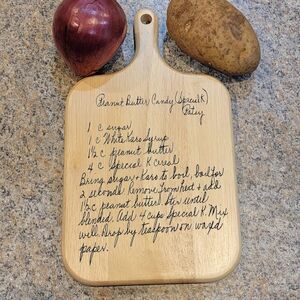 Peanut Butter Candy (Special K)
Patsy
1 c sugar
1 c White Karo Syrup
1½ c peanut butter
4 c Special K cereal
Bring sugar + Karo to boil, boil for
2 seconds Remove from heat + add
1½ c peanut butter. Stir until
blended. Add 4 cups Special K. Mix
well. Drop by teaspoon on waxed
paper.